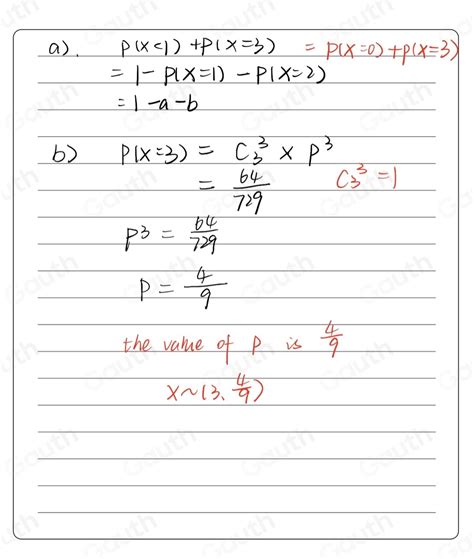 a). P(X<1) + P(X=3) = P(X=0) + P(X=3)
= 1 - P(X=1) - P(X=2)
= 1 - a - b
b) P(X=3) = C₃³ × P³
= 64/729 C₃³ = 1
P³ = 64/729
P = 4/9
the value of P is 4/9
X~(3, 4/9)